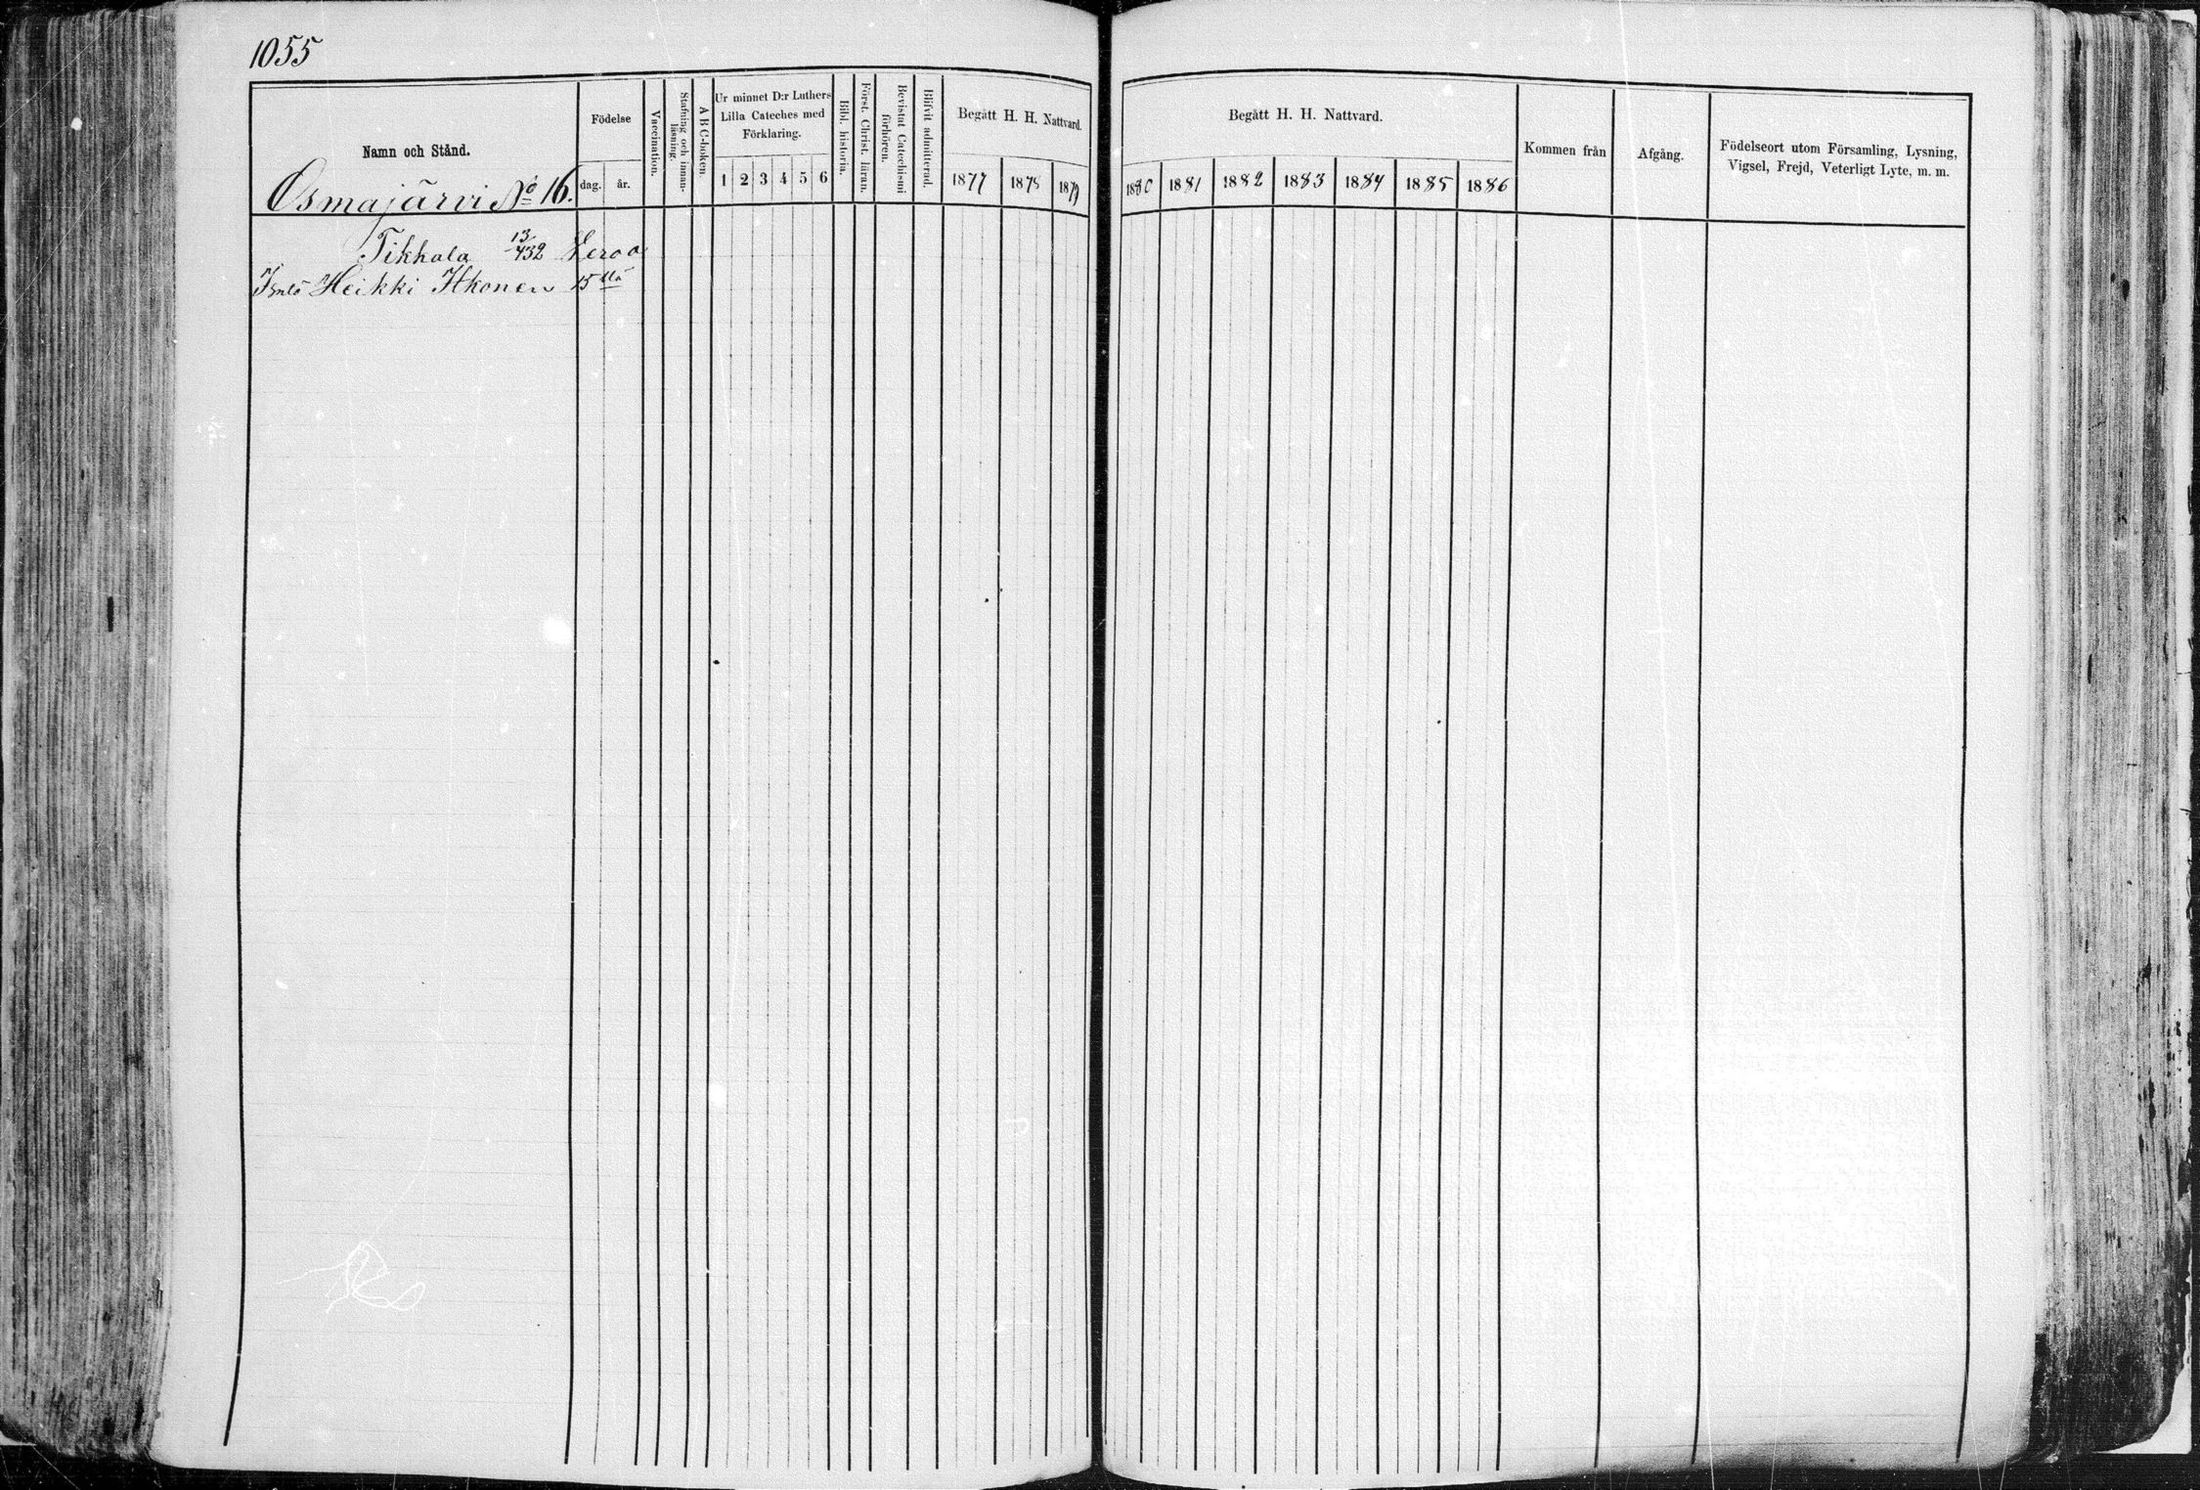 1055
Namn och Stånd.
Osmajärvi No 16.
Födelse
dag.
år.
Vaccination.
Stafning och innan-
läsning.
A B C-boken.
Ur minnet D:r Luthers
Lilla Cateches med
Förklaring.
1 2 3 4 5 6
Bibl. historia.
Först. Christ. läran.
Bevistat Catechismi
förhören.
Blifvit admitterad.
Begått H. H. Nattvard.
1877 1878 1879
Begått H. H. Nattvard.
1880 1881 1882 1883 1884 1885 1886
Kommen från
Afgång.
Födelseort utom Församling, Lysning,
Vigsel, Frejd, Veterligt Lyte, m. m.
Tikkala 13/432 Veroa
Heikki Itkonen 15